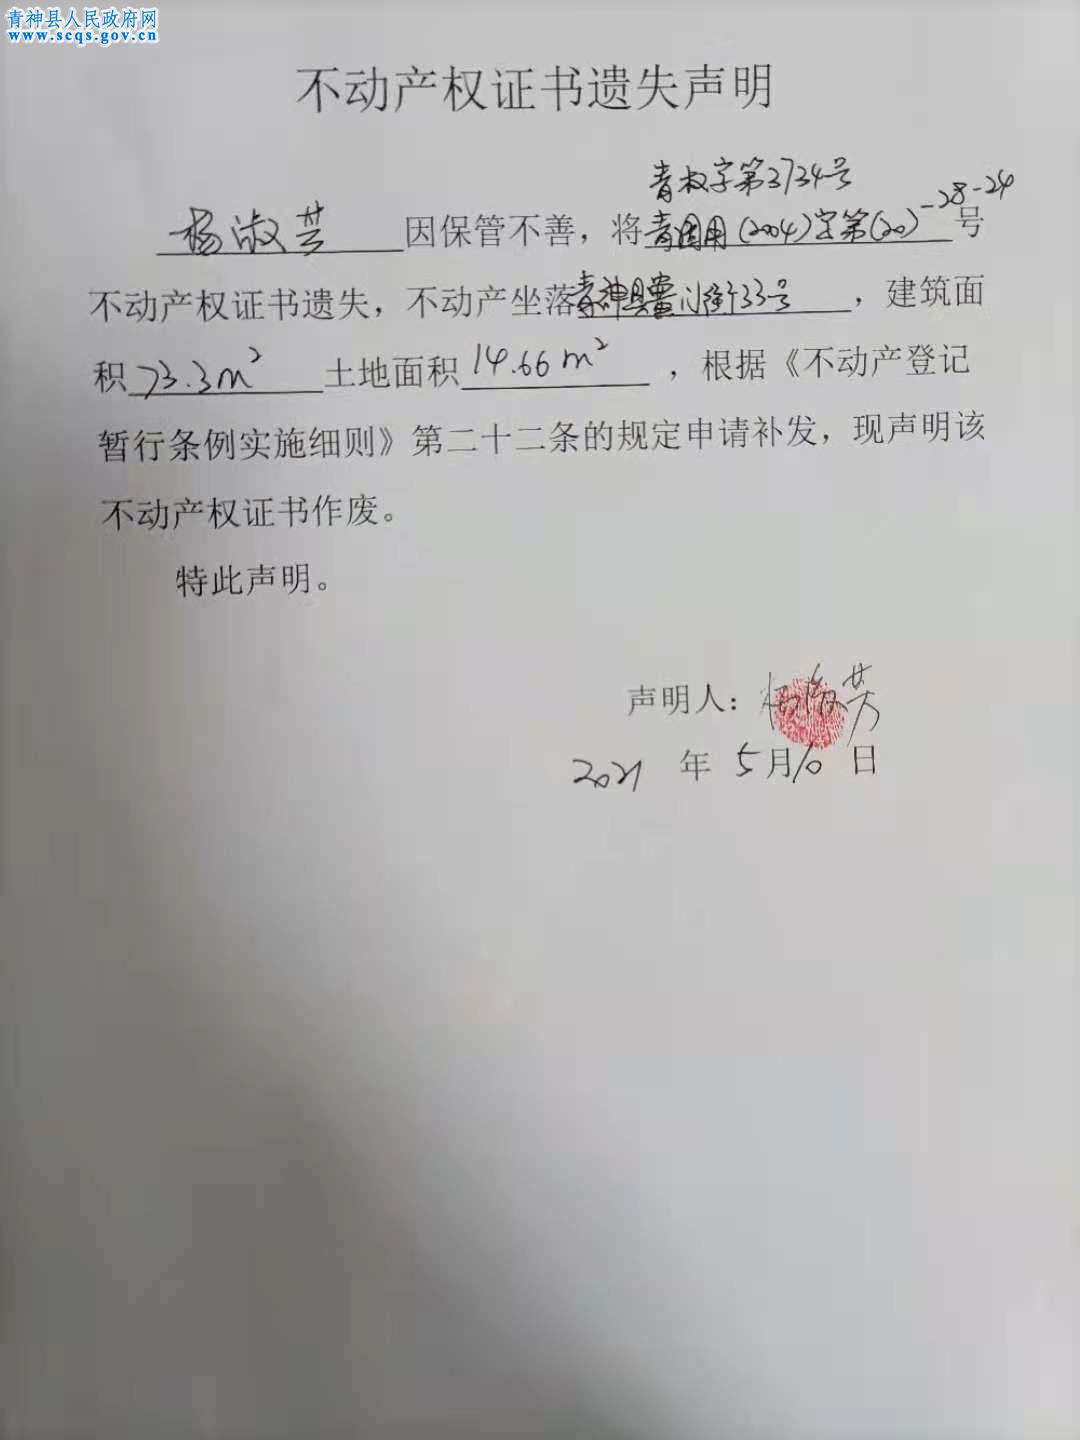 青神县人民政府网
www.scqs.gov.cn
不动产权证书遗失声明
青权字第3734号
杨淑芸因保管不善，将青国用(2004)字第(20)-28-24号
不动产权证书遗失，不动产坐落青神县小街33号，建筑面
积73.3m²土地面积14.66m²，根据《不动产登记
暂行条例实施细则》第二十二条的规定申请补发，现声明该
不动产权证书作废。
特此声明。
声明人：杨淑芳
2021年5月10日